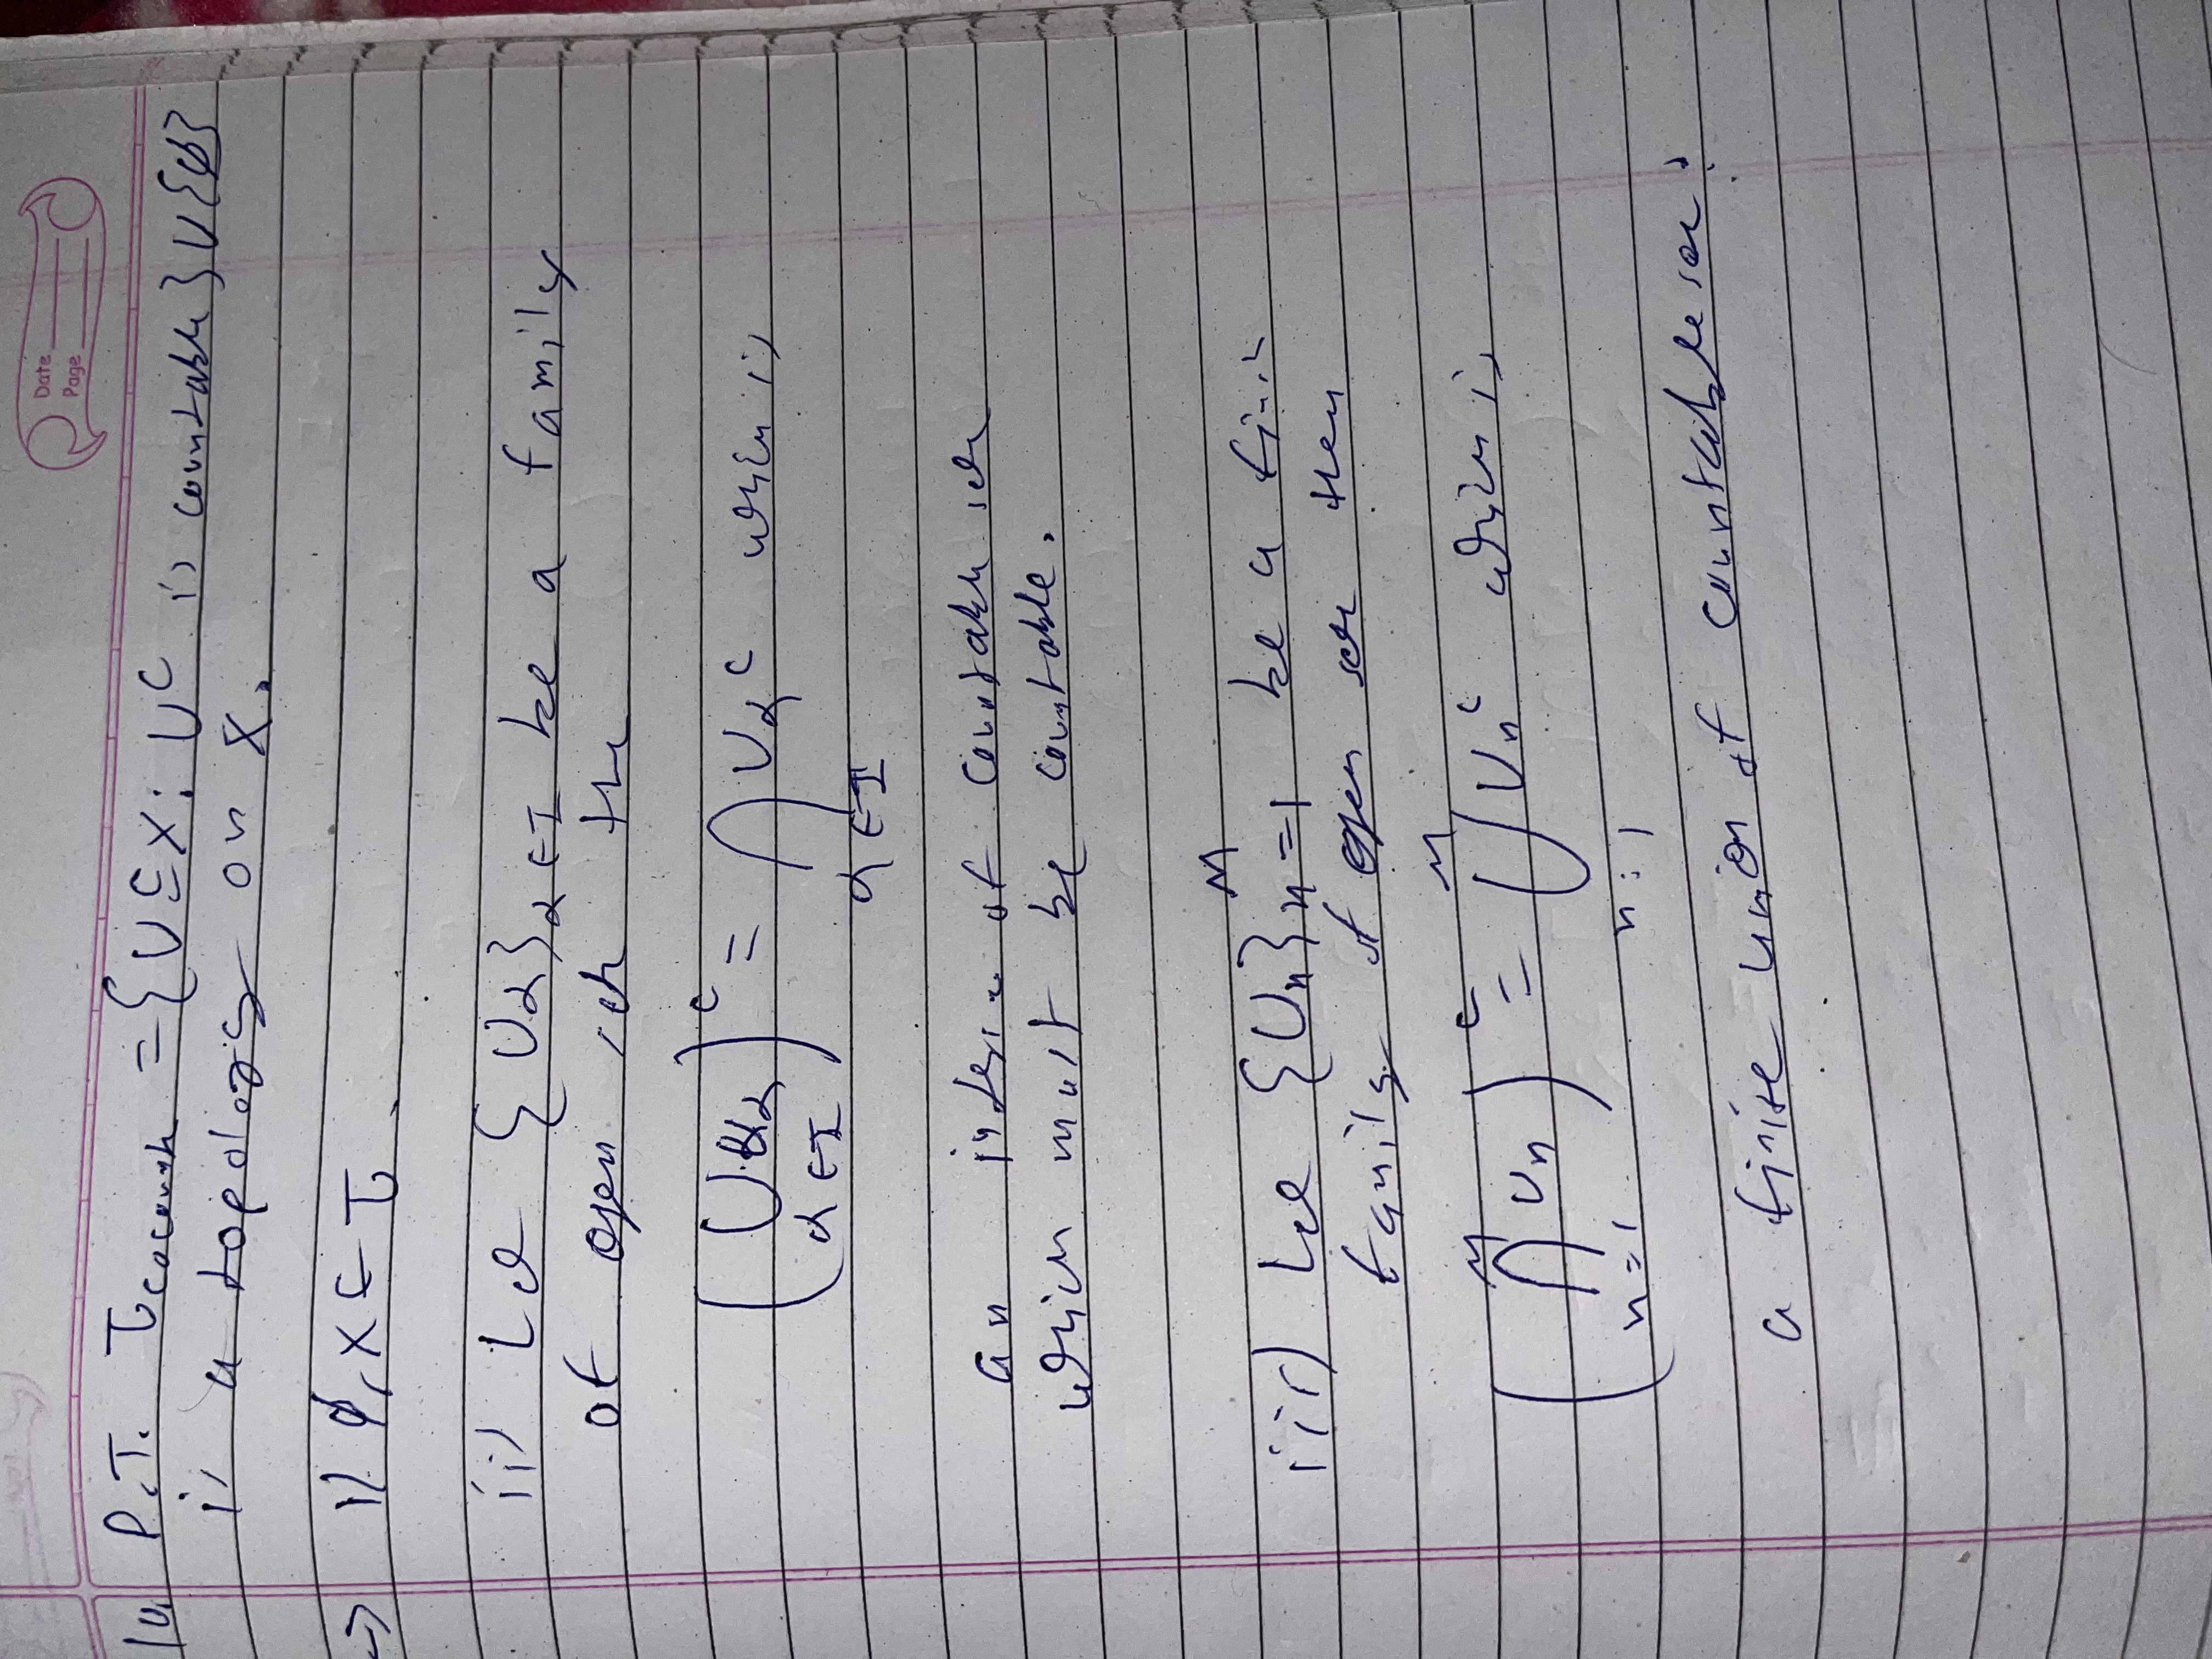 Date
Page
10. P.T. τ_cocount = {U ⊆ X : U^c is countable} ∪ {ϕ}
is a topology on X.
→ i) ϕ, X ∈ τ.
ii) Let {U_α}_α∈I be a family
of open sets the
(⋃_{α∈I} U_α)^c = ⋂_{α∈I} U_α^c which is
an of countable sets
which must be countable.
iii) Let {U_n}_{n=1}^M be a finite
family of open sets then
(⋂_{n=1}^M U_n)^c = ⋃_{n=1}^M U_n^c which is
a finite union of countable sets.